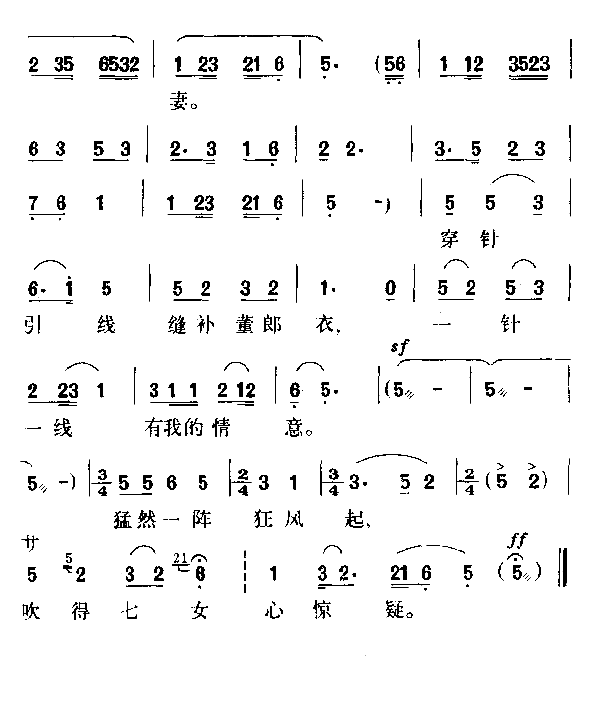 2 35 6532 | 1 23 21 6 | 5· (56 | 1 12 3523 |
妻。
63 53 | 2·3 16 | 2 2· | 3·5 23 |
76 1 | 1 23 21 6 | 5 -) | 5 5 3 |
穿 针
6·1 5 | 52 32 | 1· 0 | 52 53 |
引 线 缝 补 董 郎 衣, 一 针
sf
2 23 1 | 311 212 | 6 5· | (5 - | 5 - |
一 线 有我的 情 意。
5 -) | 3/4 5 5 6 5 | 2/4 3 1 | 3/4 3· 5 2 | 2/4 (5 2) |
猛 然 一 阵 狂 风 起,
サ ff
5 5 2 3 2 21 6 ¦ 1 3 2· 21 6 5 (5) ‖
吹 得 七 女 心 惊 疑。